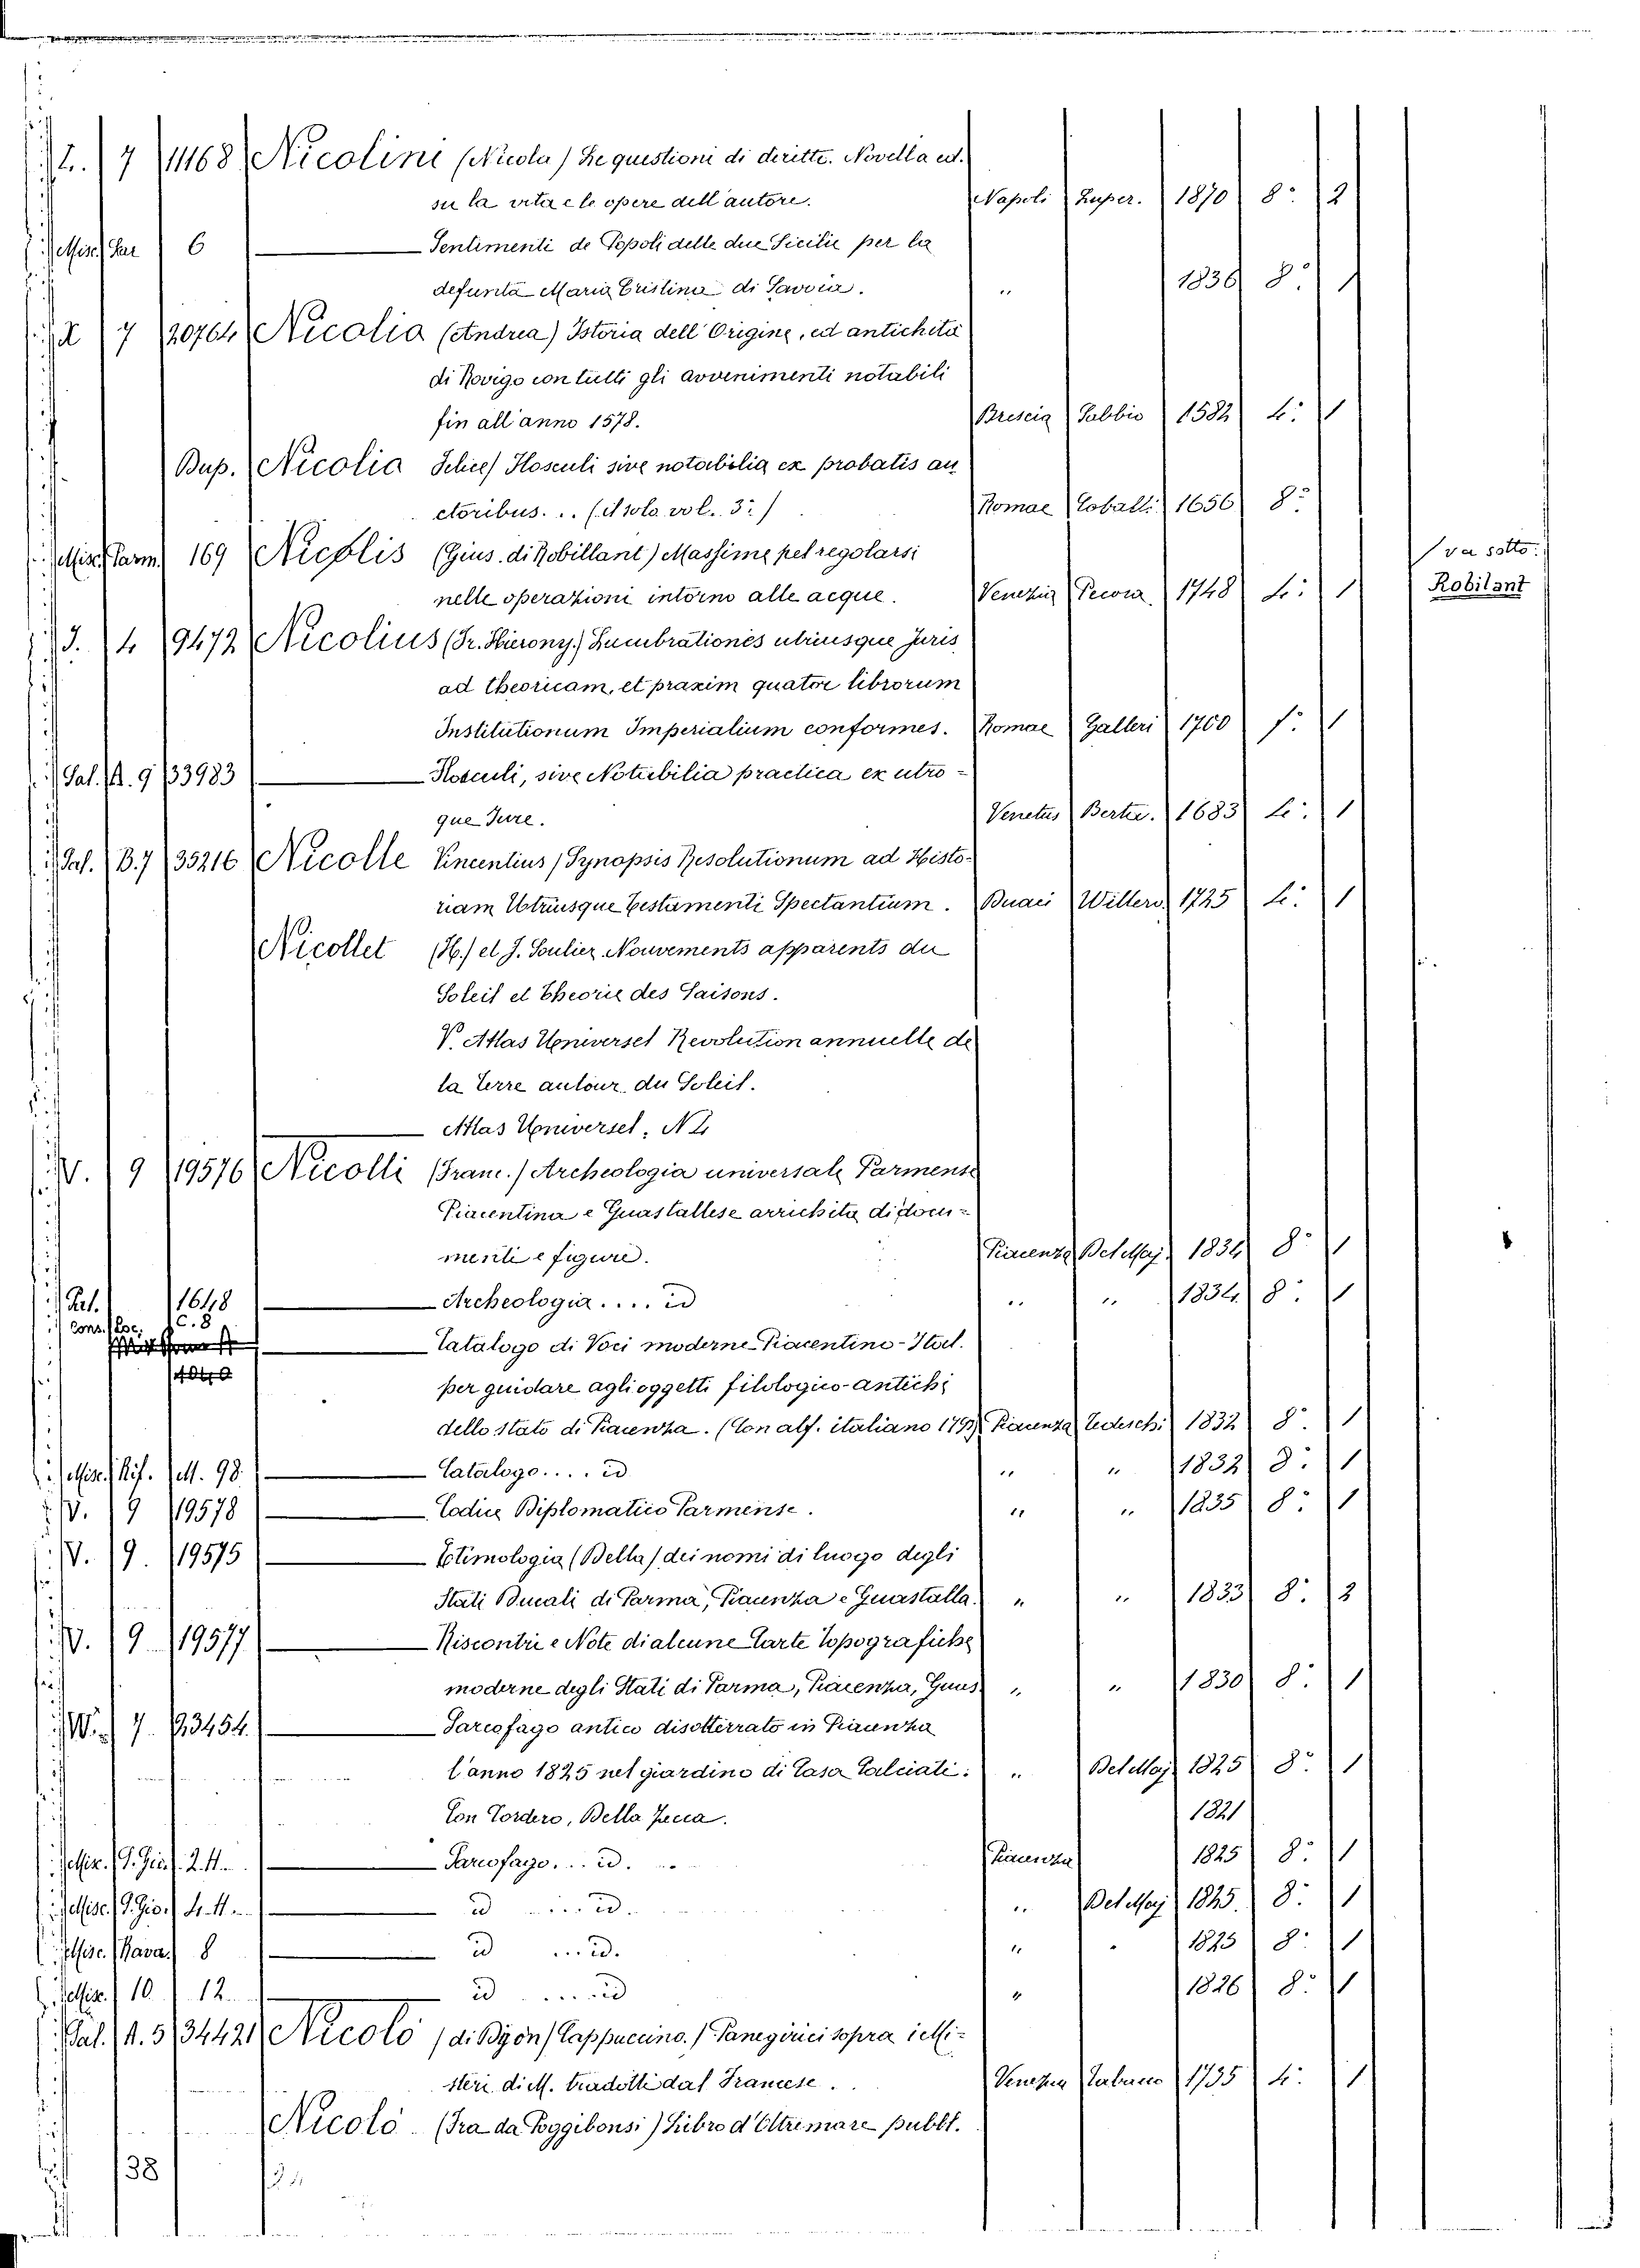 L. 7 11168 Nicolini (Nicola) Le questioni di diritto. Novella ed.
su la vita e le opere dell'autore. Napoli Super. 1870 8º 2
Misc. Sar 6 Sentimenti de Popoli delle due Sicilie per la
defunta Maria Cristina di Savoia. " 1836 8º 1
X 7 20764 Nicolio (Andrea) Istoria dell'Origine, ed antichità
di Rovigo con tutti gli avvenimenti notabili
fin all'anno 1578. Brescia Sabbio 1582 4º 1
Dup. Nicolio Felice) Flosculi sive notabilia ex probatis au
ctoribus... (Il solo vol. 3º) Romae Coball. 1656 8º
Misc. Parm. 169 Nicolis (Gius. di Robillant) Massime pel regolarsi va sotto:
nelle operazioni intorno alle acque. Venezia Pecora 1748 4º 1 Robilant
J. 4 9472 Nicolius (Fr. Hierony.) Lucubrationes utriusque Juris
ad theoricam, et praxim quator librorum
Institutionum Imperialium conformes. Romae Galleri 1700 fº 1
Pal. A. 9 33983 Flosculi, sive Notabilia practica ex utro-
que Jure. Venetus Berta. 1683 4º 1
Pal. B.7 35216 Nicolle Vincentius) Synopsis Resolutionum ad Histo-
riam Utriusque Testamenti Spectantium. Duaci Willero 1725 4º 1
Nicollet (H.) et J. Soulier Mouvements apparents du
Soleil et Theorie des Saisons.
V. Atlas Universel Revolution annuelle de
la Terre autour du Soleil.
Atlas Universel. N 2
V. 9 19576 Nicolli (Franc.) Archeologia universale Parmense
Piacentina e Guastallese arrichita di docu-
menti e figure. Piacenza Del Maj. 1834 8º 1
Pal. 1648 Archeologia.... id " " 1834 8º 1
Cons. Loc. C. 8 Catalogo di Voci moderne Piacentino-Ital.
per guidare agli oggetti filologico-antichi
dello stato di Piacenza. (Con alf. italiano 1793) Piacenza Tedeschi 1832 8º 1
Misc. Rif. M. 98 Catalogo.... id " " 1832 8º 1
V. 9 19578 Codice Diplomatico Parmense. " " 1835 8º 1
V. 9. 19575 Etimologia (Della) dei nomi di luogo degli
Stati Ducali di Parma, Piacenza e Guastalla. " " 1833 8º 2
V. 9 19577 Riscontri e Note di alcune Carte Topografiche
moderne degli Stati di Parma, Piacenza, Guas. " " 1830 8º 1
W. 7. 23454. Sarcofago antico disotterrato in Piacenza
l'anno 1825 nel giardino di Casa Calciati. " Del Maj. 1825 8º 1
Con Cordero, Della Zecca. 1821
Misc. P. Gio. 2. M. Sarcofago... id. Piacenza 1825 8º 1
Misc. P. Gio. 4. M. id ... id. " Del Maj 1825. 8º 1
Misc. Rava. 8 id ... id. " 1825 8º 1
Misc. 10 12. id .... id " 1826 8º 1
Pal. A. 5 34421 Nicolò (di Dijon) Cappuccino.) Panegirici sopra i Mi-
steri di M. tradotti dal Francese. Venezia 1735 4º 1
Nicolò (Fra da Poggibonsi) Libro d'Oltremare pubbl.
38